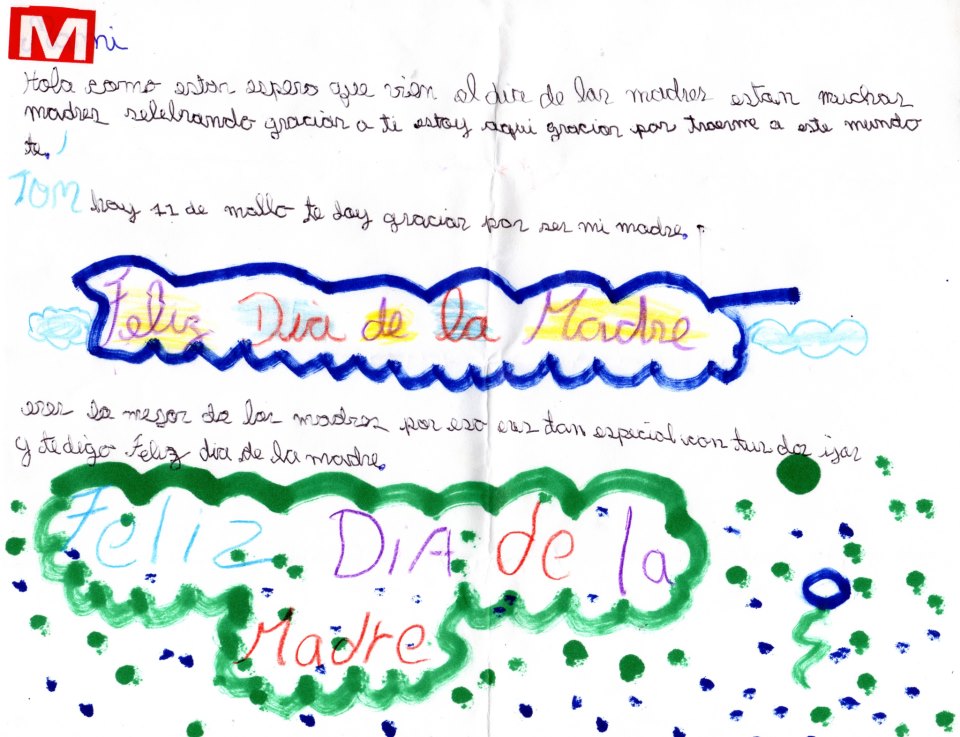 M ni
Hola como estan espero que vien el dia de las madres estan muchas
madres selebrando gracias a ti estoy aqui gracias por traerme a este mundo
te.
TOM hoy 11 de mallo te doy gracias por ser mi madre.
Feliz Dia de la Madre
eres la megor de las madres por eso eres tan especial con tus dos ijas
y te digo Feliz dia de la madre.
Feliz DiA de la
Madre